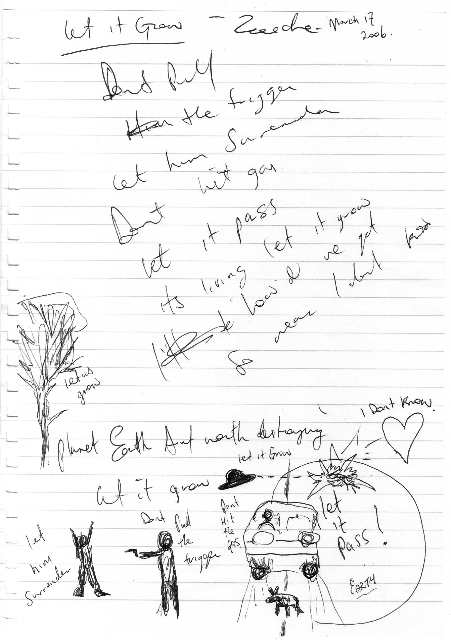 Let it Grow - March 17
2006.
Dont Pull
the trigger
Let him Surrender
Dont hit gas
Let it pass
its living let it grow
How'd we get
So near I dont know
Let us
grow
I Dont Know.
Planet Earth Aint worth destroying
Let it Grow
Let it grow
Let
him
Surrender
Dont
Pull
the
trigger
Dont
Hit
the
gas
Let
it
Pass!
EARTH